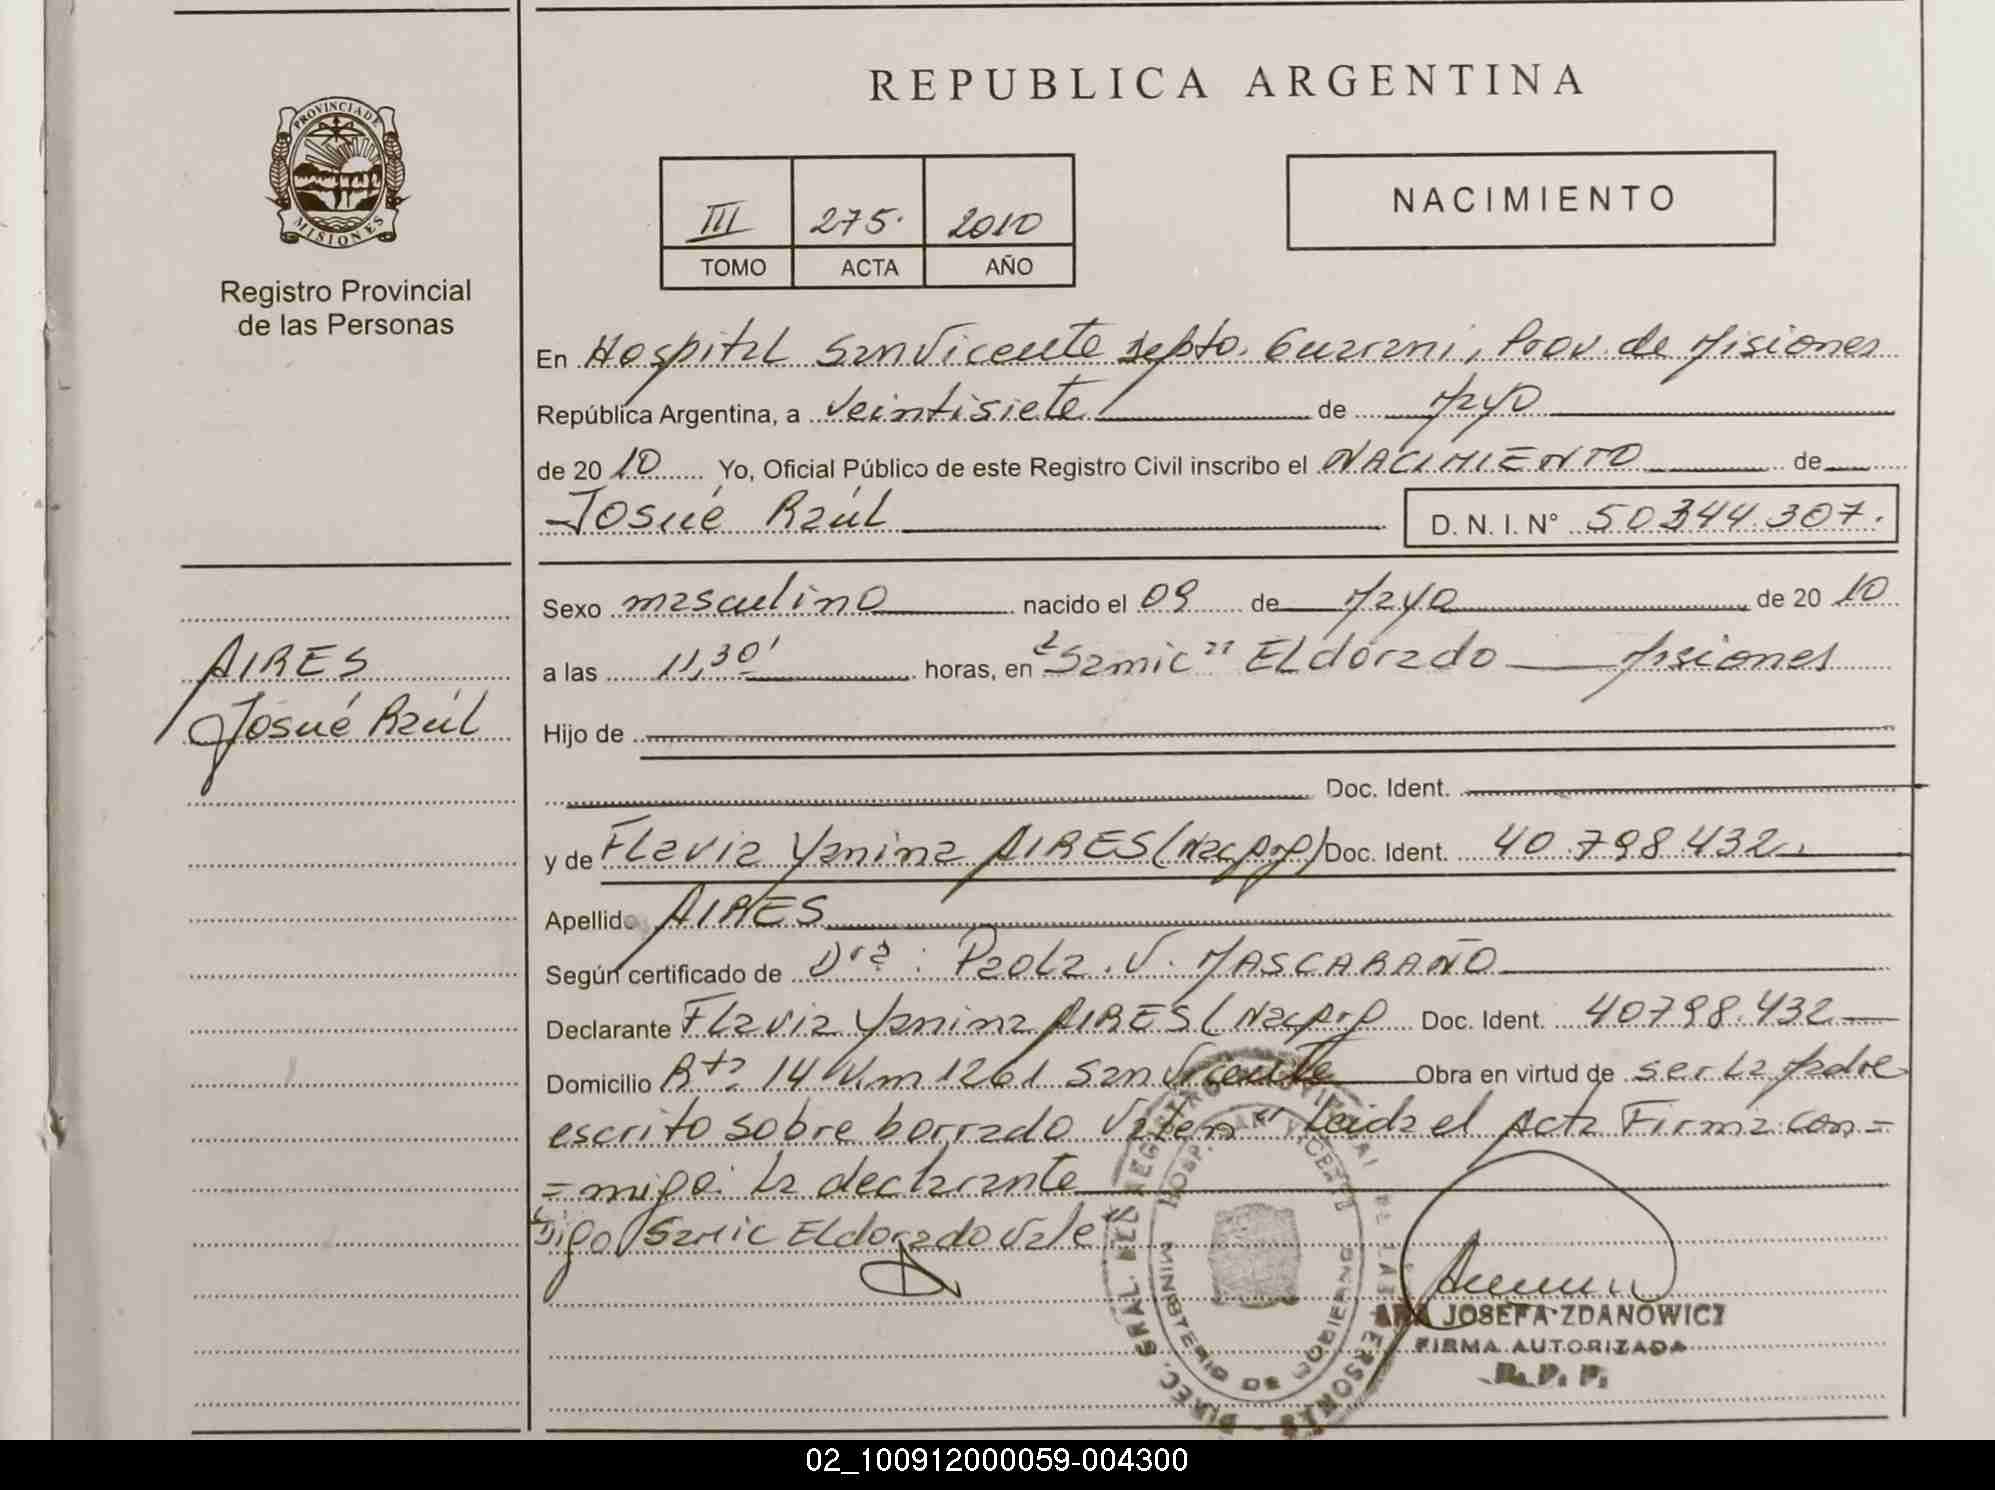 REPUBLICA ARGENTINA
PROVINCIA DE
MISIONES
Registro Provincial
de las Personas
III 275. 2010
TOMO ACTA AÑO
NACIMIENTO
En Hospital San Vicente Depto. Guarani, Prov. de Misiones
República Argentina, a veintisiete de Mayo
de 20 10 Yo, Oficial Público de este Registro Civil inscribo el NACIMIENTO de
Josué Raúl D. N. I. N° 50344.307.
Sexo masculino nacido el 09 de Mayo de 20 10
a las 11,30' horas, en "Samic" ELdorado Misiones
AIRES
Josué Raúl
Hijo de
Doc. Ident.
y de FLavia Yanina AIRES (Nac. Arg) Doc. Ident. 40.798.432.
Apellido AIRES
Según certificado de Dra: Paola. V. MASCARAÑO
Declarante FLavia Yanina AIRES (Nac Arg Doc. Ident. 40798.432
Domicilio Rta 14 Km 1261 San Vicente Obra en virtud de ser La Madre
escrito sobre borrado Valen" Leida el Acta Firma con=
=migo: La declarante
Digo Samic ELdorado Vale
DIREC. GRAL. DEL REGISTRO PROVINCIAL DE LAS PERSONAS
HOSP. SAN VICENTE
MINISTERIO DE GOBIERNO
ANA JOSEFA ZDANOWICZ
FIRMA AUTORIZADA
R. P. P.
02_100912000059-004300